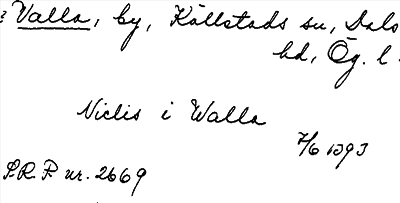 Valla, by, Källstads sn, Dals
hd, Ög. l.
Niclis i Walla
7/6 1393
S.R.P. nr. 2669